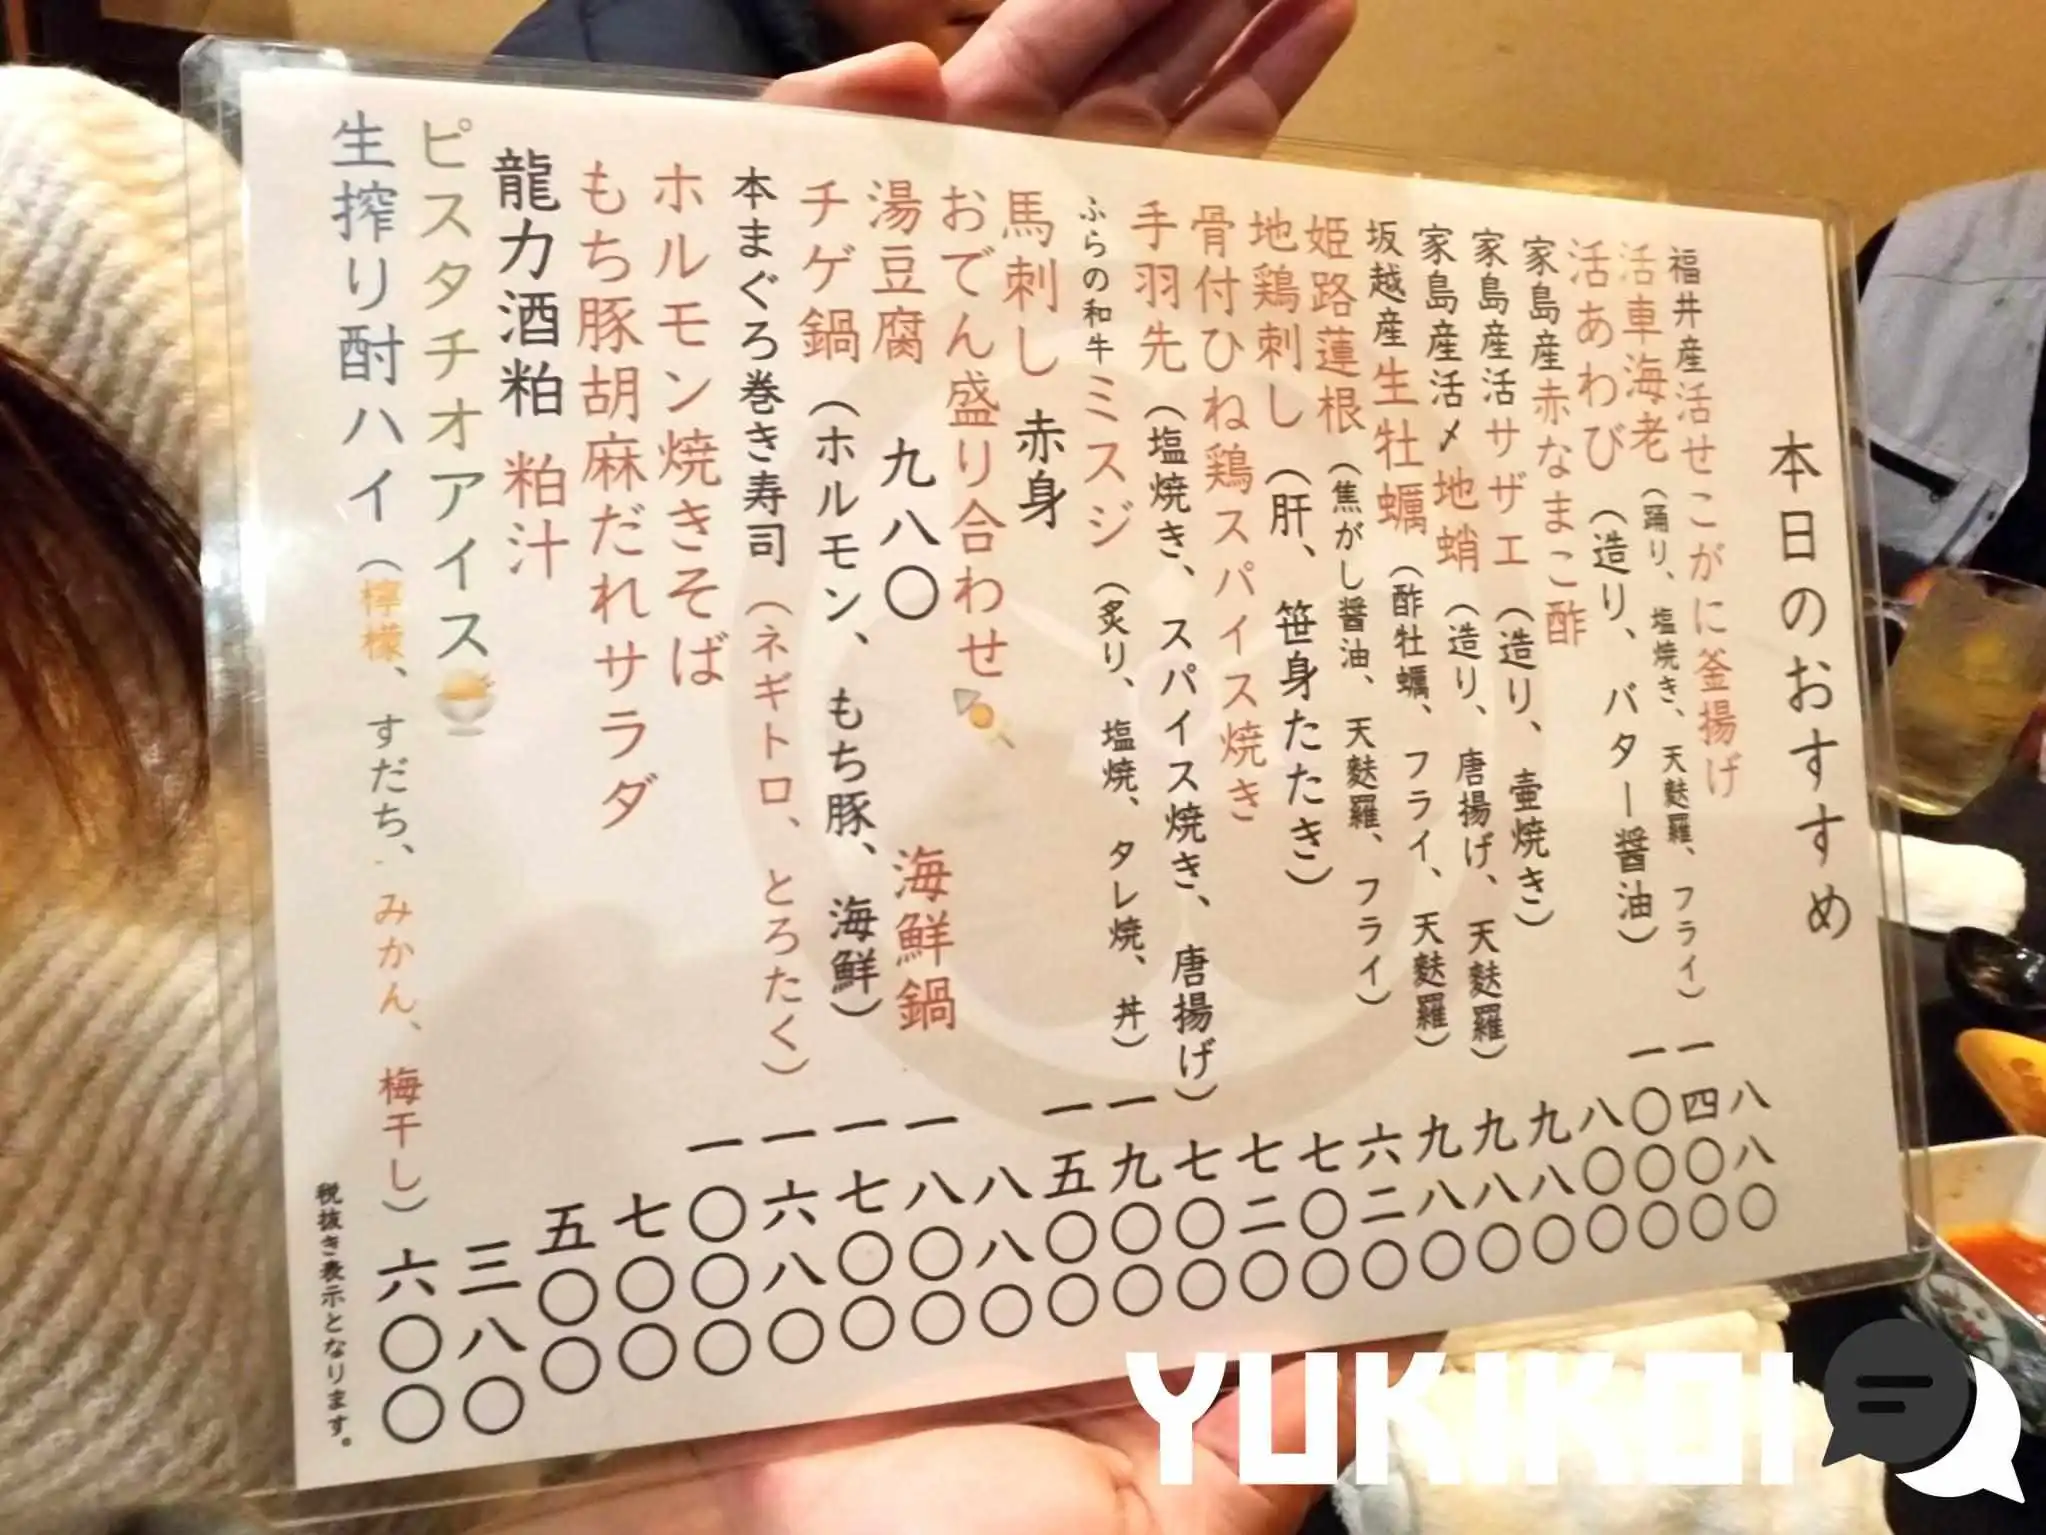 本日のおすすめ
福井産活せこがに釜揚げ 八八〇
活車海老（踊り、塩焼き、天麩羅、フライ） 一四〇〇
活あわび（造り、バター醤油） 一〇〇〇
家島産赤なまこ酢 八〇〇
家島産活サザエ（造り、壷焼き） 九八〇
家島産活〆地蛸（造り、唐揚げ、天麩羅） 九八〇
坂越産生牡蠣（酢牡蠣、フライ、天麩羅） 九八〇
姫路蓮根（焦がし醤油、天麩羅、フライ） 六二〇
地鶏刺し（肝、笹身たたき） 七〇〇
骨付ひね鶏スパイス焼き 七二〇
手羽先（塩焼き、スパイス焼き、唐揚げ） 七〇〇
ふらの和牛ミスジ（炙り、塩焼、タレ焼、丼） 一九〇〇
馬刺し 赤身 一五〇〇
おでん盛り合わせ🍢 八八〇
湯豆腐 九八〇 海鮮鍋 一八〇〇
チゲ鍋（ホルモン、もち豚、海鮮） 一七〇〇
本まぐろ巻き寿司（ネギトロ、とろたく） 一六八〇
ホルモン焼きそば 一〇〇〇
もち豚胡麻だれサラダ 七〇〇
龍力酒粕 粕汁 五〇〇
ピスタチオアイス🍨 三八〇
生搾り酎ハイ（檸檬、すだち、みかん、梅干し） 六〇〇
税抜き表示となります。
YUKIKOI